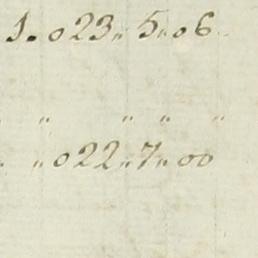 1. 023 „ 5 „ 06
„ „ „ „
„ 022 „ 7 „ 00